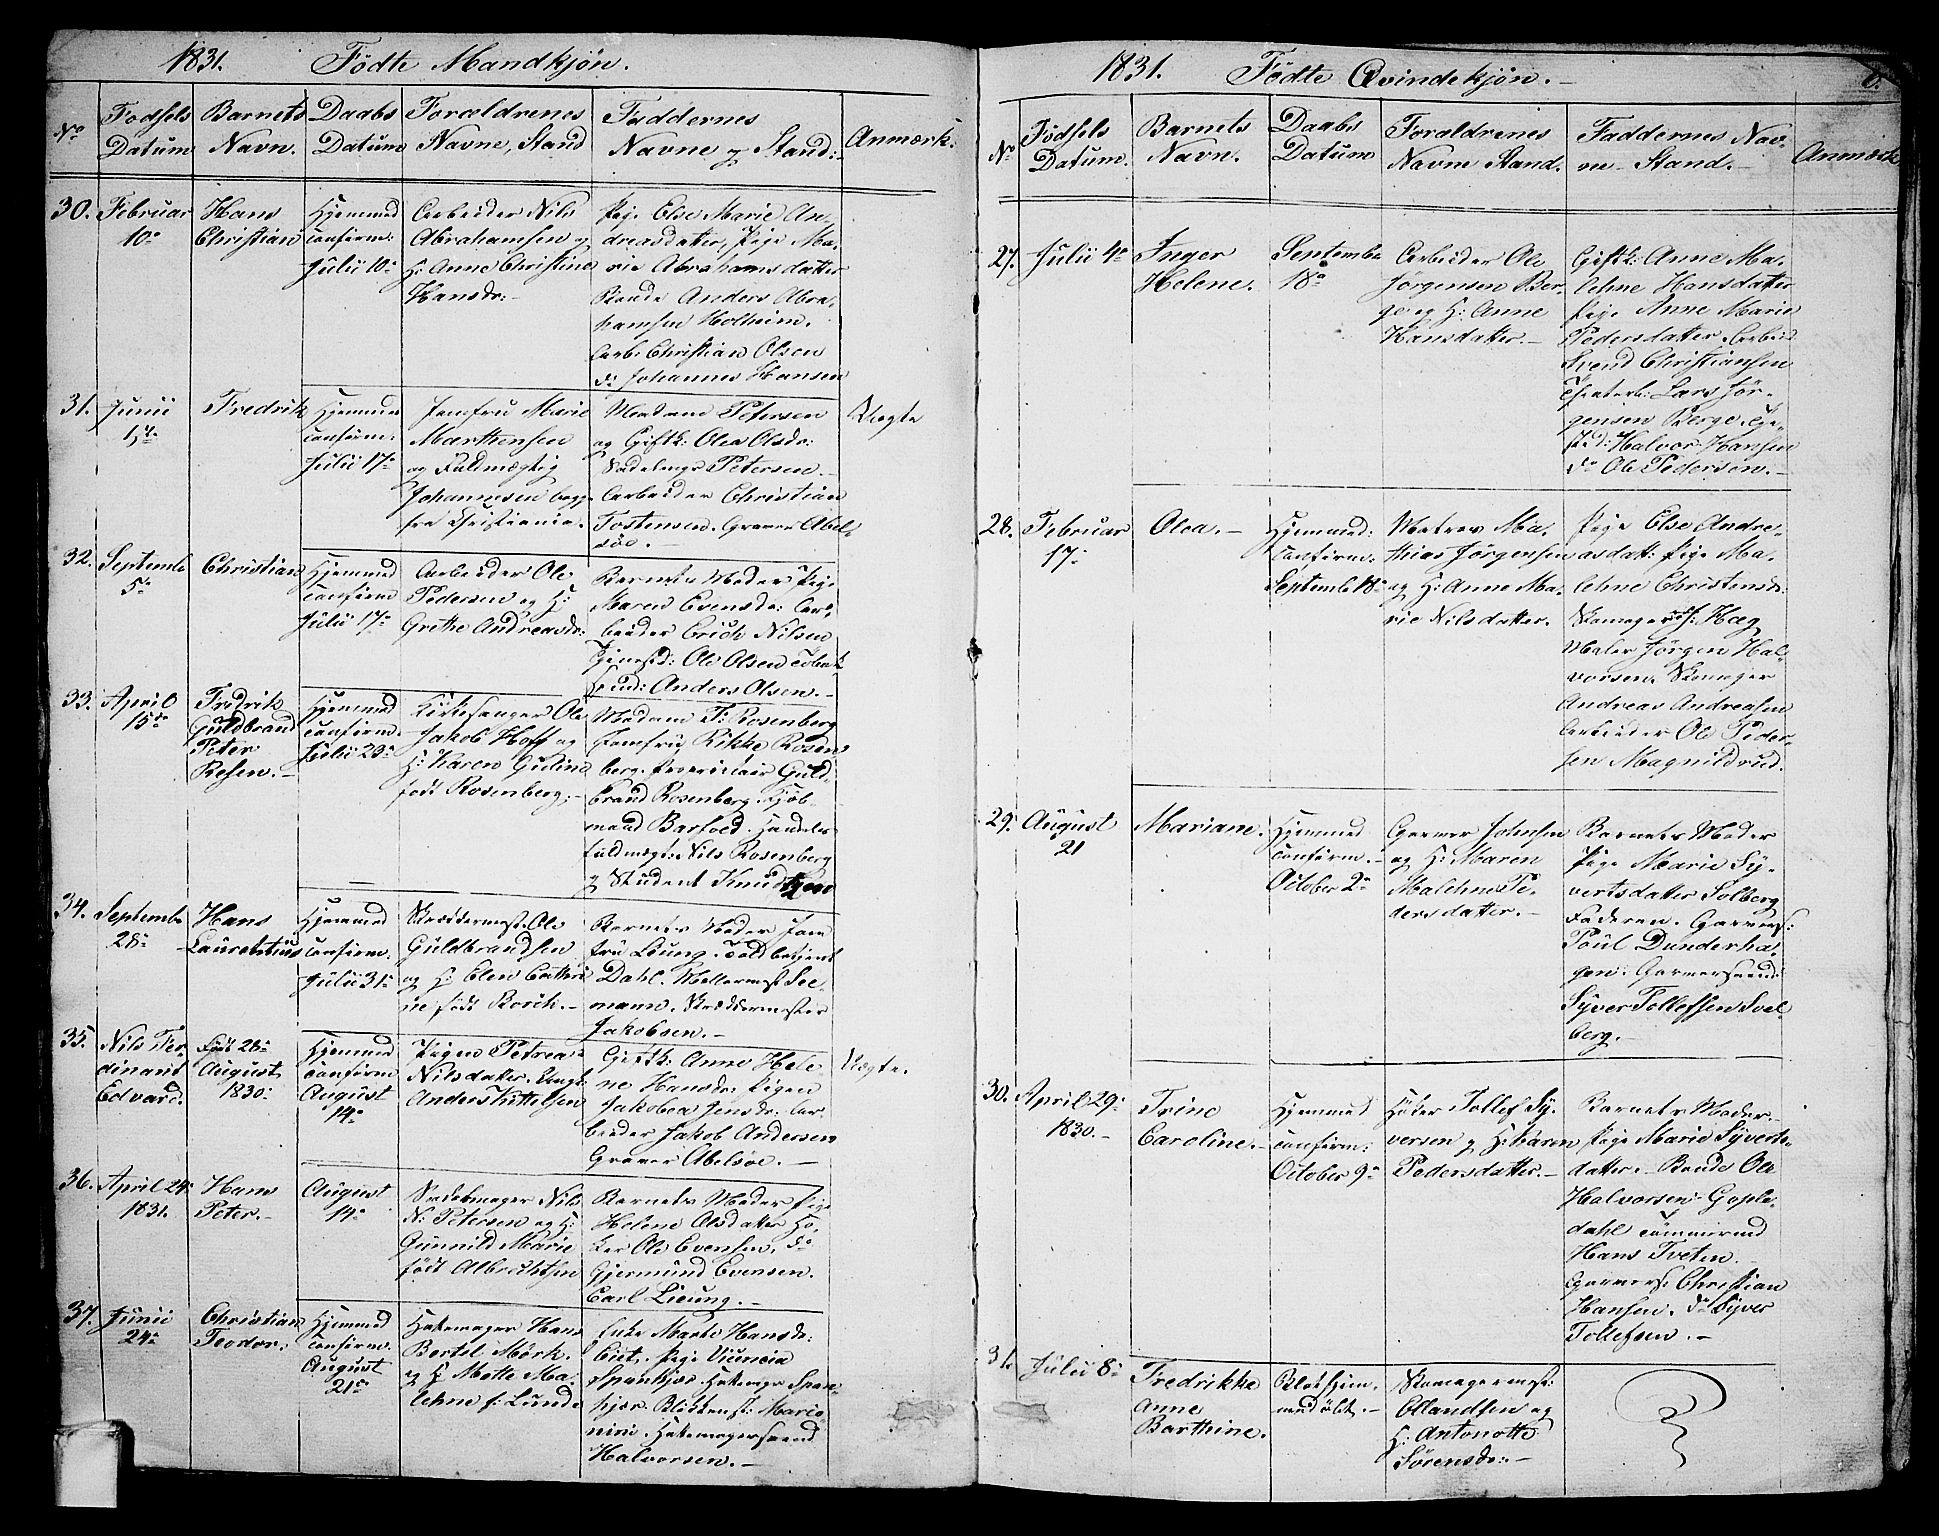 1831. Födte Mandkjön.
No
Födsels Datum
Barnets Navn.
Daabs Datum
Forældrenes Navne, Stand
Faddernes Navne og Stand:
Anmærk:
30.
Februar 10de
Hans Christian
Hjemmed
confirm:
Julii 10de
Arbeider Nils
Abrahamsen og
H: Anne Christine
Hansdr:
Pige Else Marie An-
dreasdatter, Pige Ma-
rie Abrahamsdatter
Bonde Anders Abra-
hamsen Holheim.
Arb: Christian Olsen
do Johannes Hansen
31.
Junii
Fredrik
Hjemmed
confirm:
Julii 17de
Jomfru Marie
Marthensen
og Fuldmægtig
Johannesen begge
fra Christiania.
Madame Petersen
og Giftk: Olea Olsdr:
Sadelmgr Petersen.
Arbeider Christian
Tostensen. Graver Abel-
söe.
Uægte
32.
Septembr
5te
Christian
Hjemmed
confirm
Julii 17de
Arbeider Ole
Pedersen og H:
Grethe Andreasdr:
Barnets Moder Pige
Maren Evensdr: Ar-
beider Erich Nilsen
Tjenestd: Ole Olsen Tobak
Spind: Anders Olsen.
33.
April
15de
Fredrik
Guldbrand
Peter
Resen.
Hjemmed
confirm.
Julii
Kirkesanger Ole
Jakob Hoff og
H: Karen Guline
född Rosenberg.
Madam F: Rosenberg
Jomfru Rikke Rosen-
berg. Proprietair Guld-
brand Rosenberg. Kjöb-
mand Barfoed. Handels
fuldmægt: Nils Rosenberg
og Student Knudtzen
34.
Septembr
28de
Hans
Laurentius
Hjemmed
confirm.
Julii 31te
Skræddermest. Ole
Guldbrandsen
og H: Elen Cathri
ne född Borch.
Barnets Moder Jom
fru Lieung. Toldbetjent
Dahl. Mollermest See-
mann. Skræddermester
Jakobsen.
35.
Nils Fer-
dinant
Edvard.
Född 28de
August
1830
Hjemmed
confirm
August
14de
Pigen Petrea
Nilsdatter. Ungk:
Anders Kittelsen
Giftk: Anne Hele
ne Hansdr: Pigen
Jakobea Jensdr: Ar-
beider Jakob Andersen
Graver Abelsöe.
Uægte.
36.
April 24de
1831.
Hans
Peter.
August
14de
Sadelmager Nils
N: Petersen og H:
Gunnild Marie
född Albrechtsen
Barnets Moder Pige
Helene Olsdatter Hö-
ker Ole Evensen, do
Gjermund Evensen.
Carl Lieung.
37.
Junii
24de
Christian
Teodor.
Hjemmed
confirm.
August
21de
Hattemager Hans
Bertel Mörk.
og H: Mette Ma-
lehne f: Lunde
Enke Marte Hansdr:
Eiet. Pige Vicensia
Spankjær. Hattemager Span-
kjær. Blikkenst: Mario-
nini. Hattemagersvend
Halvorsen.
1831. Födte Qvindekjön.
No
Födsels Datum.
Barnets Navn.
Daabs Datum
Forældrenes Navn Stand.
Faddernes Nav-
ne Stand.
Anmærk
27.
Julii 4de
Inger
Helene.
Septembr
18de
Arbeider Ole
Jörgensen Ber-
ge og H: Anne
Hansdatter.
Giftk: Anne Ma-
lehne Hansdatter
Pige Anne Marie
Pedersdatter. Arbeid
Svend Christiansen
Theaterb: Lars Jör-
gensen Berge. Tje-
std: Halvor Hansen
do Ole Pedersen.
28.
Februar
17de
Olea.
Hjemmed:
confirm.
Septembr 18de
Matros Ma-
thias Jörgensen
og H: Anne Ma-
rie Nilsdatter.
Pige Else Andre-
asdatt: Pige Ma-
lehne Christensdr.
Skomager Hæg
Maler Jörgen Hal-
vorsen. Skomager
Andreas Andreasen
Arbeider Ole Peder-
sen Magnildrud.
29.
August
21
Mariane.
Hjemmed
confirm.
October 2de
Garver Johnsen
og H: Maren
Malehne Pe-
dersdatter.
Barnets Moder
Pige Marie Sy-
vertsdatter Solberg
Faderen. Garvers:
Poul Dunderha-
gen. Garversvend
Syver Tollefsen Svel-
berg.
30.
April 29de
1830.
Trine
Caroline.
Hjemmed
confirm:
October 9de
Höker Tollef Sy-
versen og H: Karen
Pedersdatter.
Barnets Moder
Pige Marie Syverts-
datter. Bonde Ole
Halvorsen Gople-
dahl Tömmermd
Hans Tveten
Garvers: Christian
Hansen. do Syver
Tollefsen.
31.
Julii 8de
Fredrikke
Anne
Barthine.
Blot hjem-
med döbt.
Skomagermest:
Ellandsen og
H: Antonette
Sörensdr: